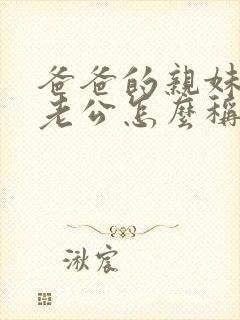 爸爸的親妹
老公怎麼稱
湫宸